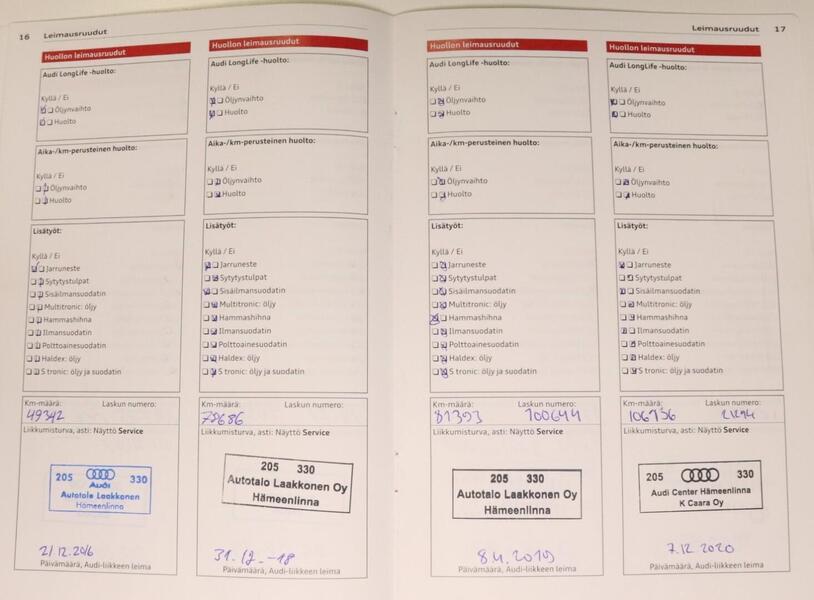 16 Leimausruudut
Huollon leimausruudut
Audi LongLife -huolto:
Kyllä / Ei
Öljynvaihto
Huolto
Aika-/km-perusteinen huolto:
Kyllä / Ei
Öljynvaihto
Huolto
Lisätyöt:
Kyllä / Ei
Jarruneste
Sytytystulpat
Sisäilmansuodatin
Multitronic: öljy
Hammashihna
Ilmansuodatin
Polttoainesuodatin
Haldex: öljy
S tronic: öljy ja suodatin
Km-määrä: Laskun numero:
49342
Liikkumisturva, asti: Näyttö Service
205 330
Audi
Autotalo Laakkonen
Hämeenlinna
Päivämäärä, Audi-liikkeen leima
Huollon leimausruudut
Audi LongLife -huolto:
Kyllä / Ei
Öljynvaihto
Huolto
Aika-/km-perusteinen huolto:
Kyllä / Ei
Öljynvaihto
Huolto
Lisätyöt:
Kyllä / Ei
Jarruneste
Sytytystulpat
Sisäilmansuodatin
Multitronic: öljy
Hammashihna
Ilmansuodatin
Polttoainesuodatin
Haldex: öljy
S tronic: öljy ja suodatin
Km-määrä: Laskun numero:
78686
Liikkumisturva, asti: Näyttö Service
205 330
Autotalo Laakkonen Oy
Hämeenlinna
31.12.-18
Päivämäärä, Audi-liikkeen leima
Leimausruudut 17
Huollon leimausruudut
Audi LongLife -huolto:
Kyllä / Ei
Öljynvaihto
Huolto
Aika-/km-perusteinen huolto:
Kyllä / Ei
Öljynvaihto
Huolto
Lisätyöt:
Kyllä / Ei
Jarruneste
Sytytystulpat
Sisäilmansuodatin
Multitronic: öljy
Hammashihna
Ilmansuodatin
Polttoainesuodatin
Haldex: öljy
S tronic: öljy ja suodatin
Km-määrä: Laskun numero:
81393 700644
Liikkumisturva, asti: Näyttö Service
205 330
Autotalo Laakkonen Oy
Hämeenlinna
8.4.2019
Päivämäärä, Audi-liikkeen leima
Huollon leimausruudut
Audi LongLife -huolto:
Kyllä / Ei
Öljynvaihto
Huolto
Aika-/km-perusteinen huolto:
Kyllä / Ei
Öljynvaihto
Huolto
Lisätyöt:
Kyllä / Ei
Jarruneste
Sytytystulpat
Sisäilmansuodatin
Multitronic: öljy
Hammashihna
Ilmansuodatin
Polttoainesuodatin
Haldex: öljy
S tronic: öljy ja suodatin
Km-määrä: Laskun numero:
106936
Liikkumisturva, asti: Näyttö Service
205 330
Audi Center Hämeenlinna
K Caara Oy
7.12.2020
Päivämäärä, Audi-liikkeen leima